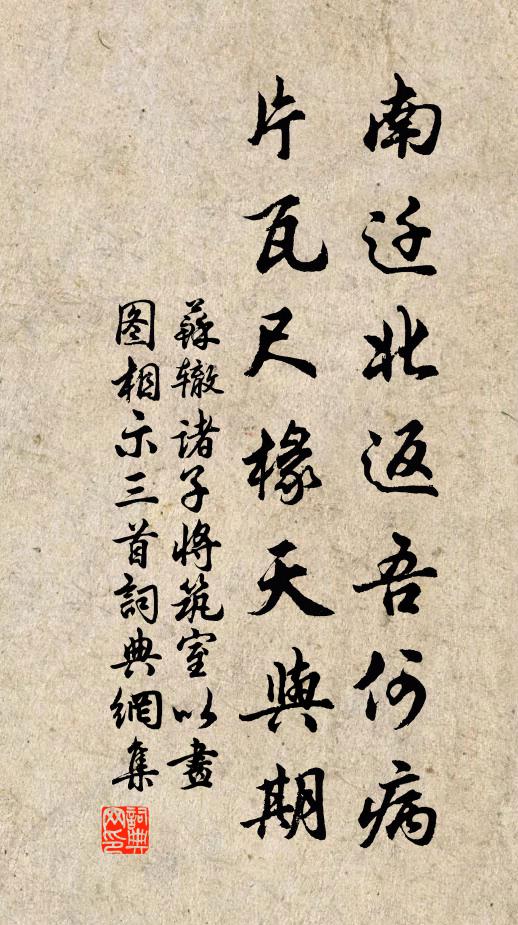 南迁北返吾何病
片瓦尺椽天與期
蘇辙诸子将筑室以畫
图相示三首詞典網集
詞典网印